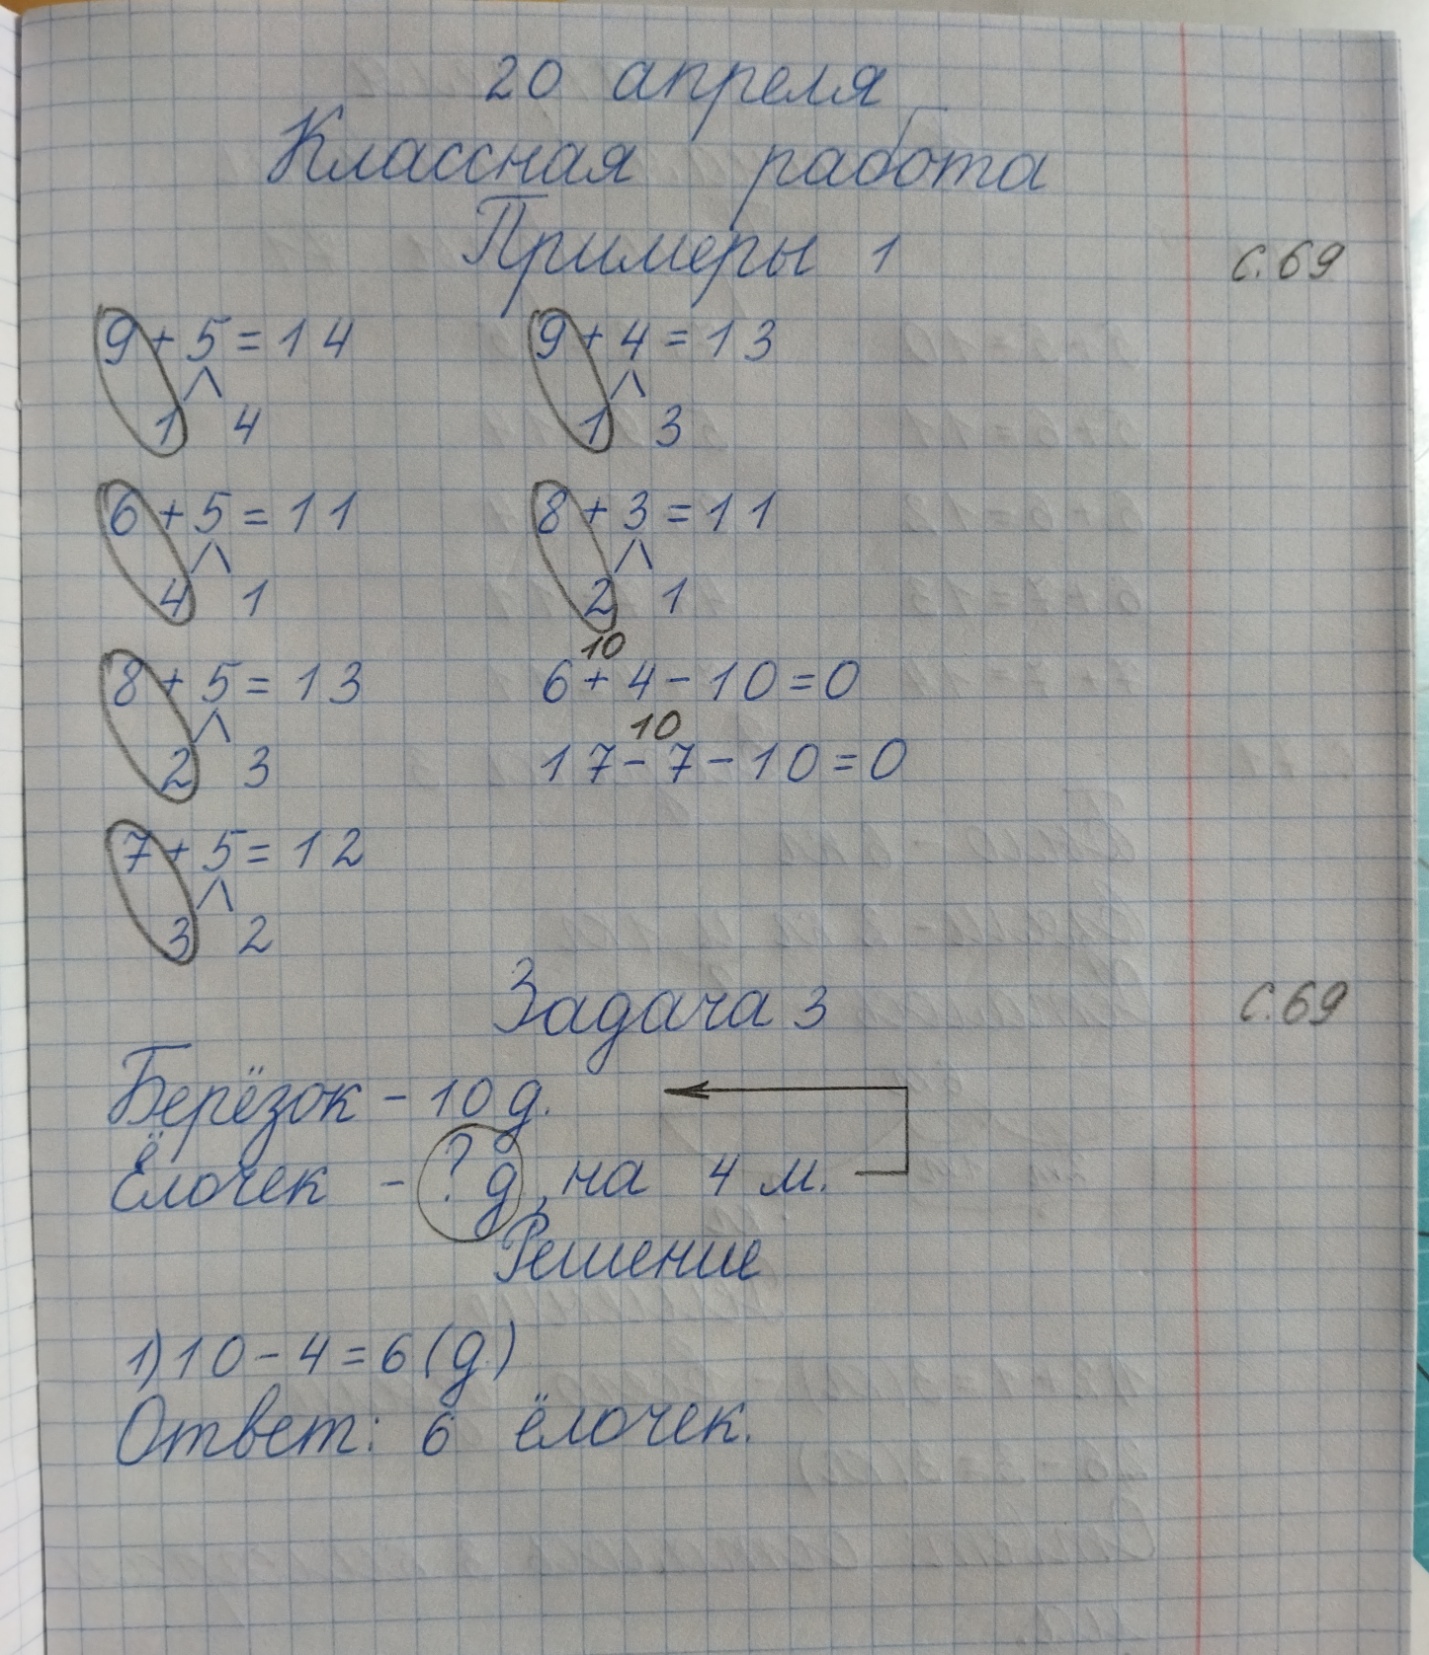 20 апреля
Классная работа
Примеры 1 с.69
9+5=14 9+4=13
1 4 1 3
6+5=11 8+3=11
4 1 2 1
10
8+5=13 6+4-10=0
10
2 3 17-7-10=0
7+5=12
3 2
Задача 3 с.69
Берёзок - 10 д.
Ёлочек - ? д, на 4 м.
Решение
1) 10-4=6 (д.)
Ответ: 6 ёлочек.